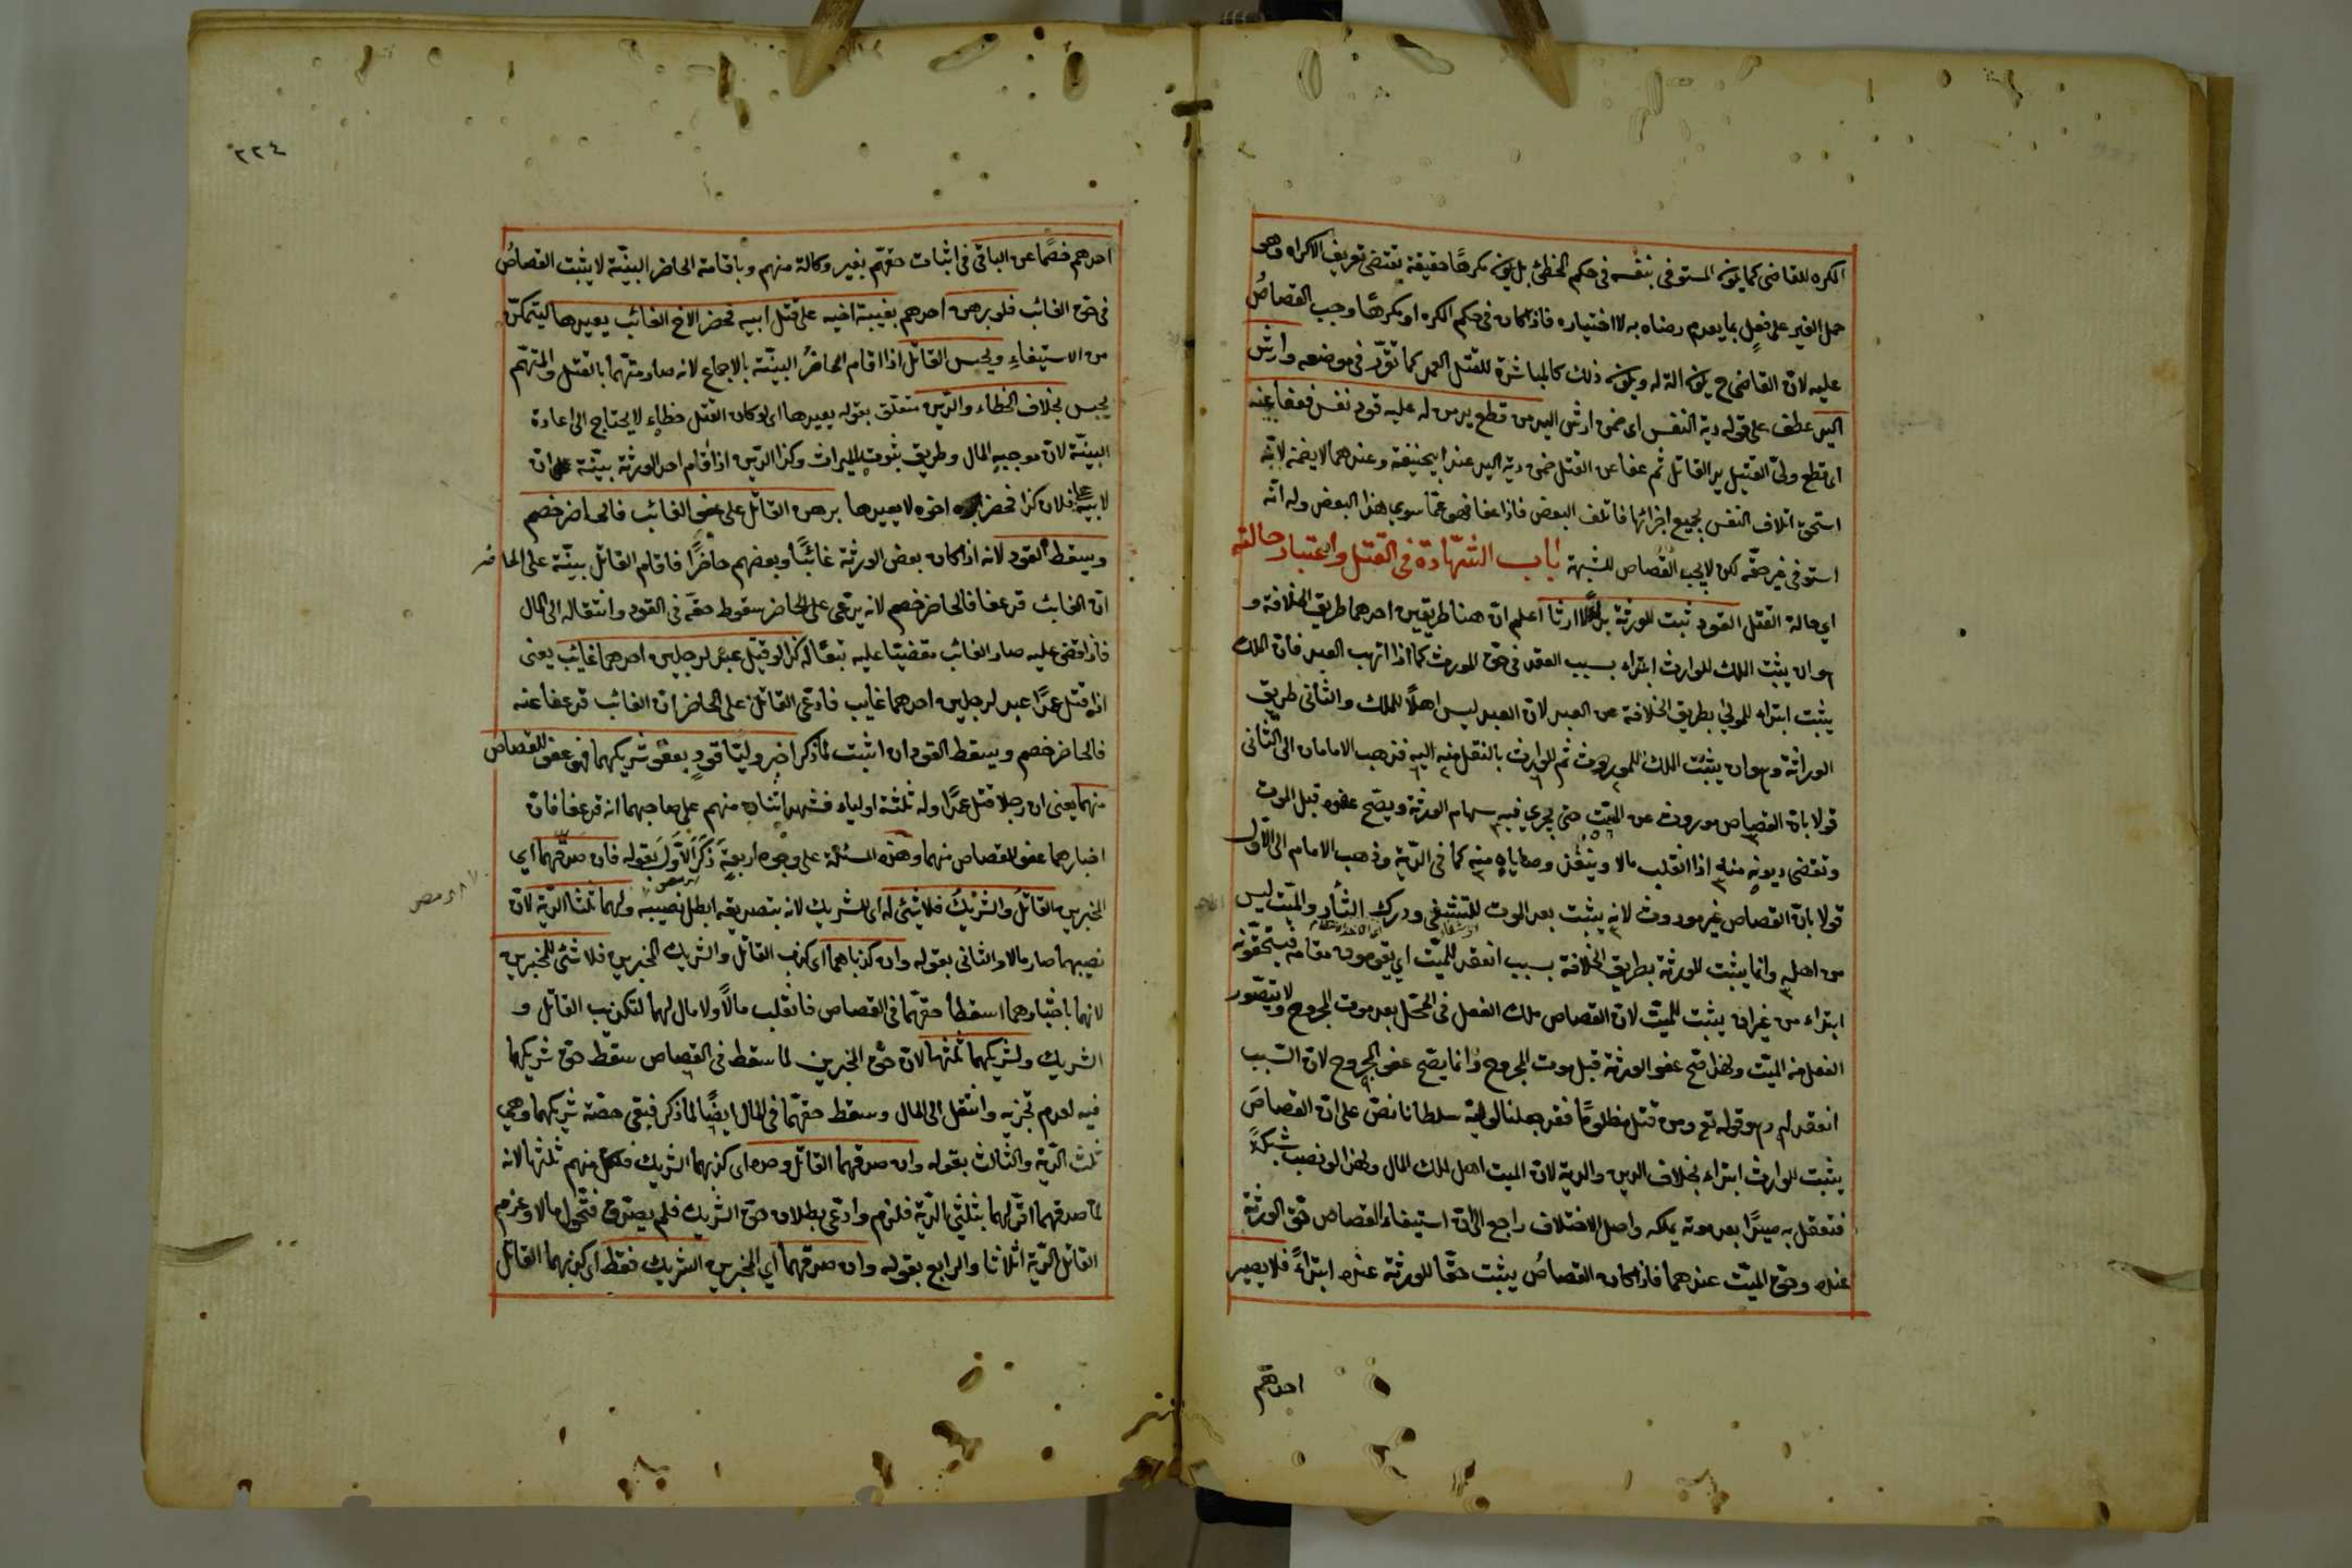 المكره للقاضى كما يكون المستوفى بنفسه فى حكم المخطئ بل يكون مكرها حقيقة تقتضى تعريف الاكراه وهى
حمل الغير على فعل بما يعدم رضاه به لا اختياره فاذا كان فى حكم المكره او مكرها وجب القصاصُ
عليه لان القاضى ح يكون آلة له ويكون ذلك كالمباشرة للقتل العمد كما تقرّر فى موضعه وارش
اليد عطف على قوله دية النفس اى ضمن ارش اليد من قطع يد من له عليه قود نفس فعفا عنه
اى قطع ولىّ القتيل يد القاتل ثم عفا عن القتل ضمن دية اليد عند ابيحنيفة وعندهما لا يضمنه لانّه
استحق اتلاف النفس بجميع اجزائها فاتلف البعض فاذا عفا فهو عمّا سوى هذا البعض وله انّه
استوفى غير حقّه لكن لا يجب القصاص للشبهة باب الشهادة فى القتل واعتبار حالته
اي حالة القتل القود ثبت للورثة بدأ لا ارثا اعلم ان هنا طريقين احدهما طريق الخلافة و
هو ان يثبت الملك للوارث ابتداء بسبب العقد فى حق المورث كما اذا اتهب العبد فان الملك
يثبت ابتداء للمولى بطريق الخلافة عن العبد لان العبد ليس اهلًا للملك والثانى طريق
الوراثة وهو ان يثبت الملك للمورث ثم للوارث بالنقل منه اليه فذهب الامامان الى الثانى
قولا بان القصاص موروث عن الميّت حتى يجري فيه سهام الورثة ويصّح عفوه قبل الموت
وتقضى ديونه منه اذا انقلب مالا وينفذ وصاياه منه كما فى الدّية وذهب الامام الى الاول
قولا بانّ القصاص غير موروث لانه يثبت بعد الموت للتشفى ودرك الثأر والميّت ليس
من اهله وانما يثبت للورثة بطريق الخلافة بسبب انعقد للميّت اي يقومون مقامه فيستحقونه
ابتداء من غير ان يثبت للميّت لان القصاص ملك الفعل فى المحّل بعد موت المجروح ولا يتصّور
الفعل من الميّت ولهذا صّح عفو الورثة قبل موت المجروح وانما يصّح عفو المجروح لان السّبب
انعقد له وقوله تع ومن قتل مظلومًا فقد جعلنا لوليه سلطانا نصّ على ان القصاصَ
يثبت للوارث ابتداء بخلاف الدين والدية لان الميت اهل لملك المال ولهذا لو نصب شبكةً
فتعقل به صيدًا بعد موته يملكه واصل الاختلاف راجع الى ان استيفاء القصاص حّق الورثة
عنده وحق الميّت عندهما فاذا كان القصاصُ يثبت حقّا للورثة عنده ابتداءً فلا يصير
احدهم
٢٢٤
احدهم خصمًا عن الباقى فى اثبات حقهم بغير وكالة منهم وباقامة الحاضر البيّنة لا يثبت القصاصُ
فى حق الغائب فلو برهن احدهم بغيبة اخيه على قتل ابيه فحضر الاخ الغائب يعيدها ليتمكّن
من الاستيفاءِ ويحبس القاتل اذا اقام الحاضرُ البيّنة بالاجماع لانه صار متهّما بالقتل والمتهّم
يحبس بخلاف الخطاء والدّين متعلق بقوله يعيدها اى لو كان القتل خطاء لا يحتاج الى اعادة
البينّة لان موجبه المال وطريق ثبوته الميراث وكذا الدّين اذا اقام احد الورثة بيّنة ان
لابيه على فلان كذا فحضر اخوه لا يعيدها برهن القاتل على عفو الغائب فالحاضر خصم
ويسقط القود لانه اذا كان بعض الورثة غائبًا وبعضهم حاضرًا فاقام القاتل بيّنة على الحاضر
ان الغائب قد عفا فالحاضر خصم لانه يدّعى على الحاضر سقوط حقّه فى القود وانتقاله الى المال
فاذا قضى عليه صار الغائب مقضيّا عليه تبعًا له كذا لو قتل عبد لرجلين احدهما غائب يعنى
اذا قتل عمدًا عبد لرجلين احدهما غايب فادعى القاتل على الحاضر ان الغائب قد عفا عنه
فالحاضر خصم ويسقط القود ان اثبت لما ذكر اخبر وليّا قود بعفو شريكهما فهو عفو للقصاص
منهما يعنى ان رجلا قتل عمدًا وله ثلثة اولياء فشهد اثنان منهم على صاحبهما انه قد عفا فان
اخبارهما عفو للقصاص منهما وهذه المسئلة على وجوه اربعة ذكر الاول بقوله فان صدّقهما اي
المخبرين القاتلُ والشريكُ فلا شئ له اى للشريك لانه بتصديقه ابطل نصيبه ولهما ثلثا الدّية لان
نصيبهما صار مالا والثانى بقوله وان كذباهما اى كذب القاتل والشريك المخبرين فلا شئ للمخبرين
لانهما باخبارهما اسقطا حقهّما فى القصاص فانقلب مالًا ولا مال لهما لتكذيب القاتل و
الشريك ولشريكهما ثلثها لان حق المخبرين لما سقط فى القصاص سقط حق شريكهما
فيه لعدم تجزيه وانتقل الى المال وسقط حقهّما فى المال ايضًا لما ذكر فبقى حصّة شريكهما وهي
ثلث الدّية والثالث بقوله وان صدقهما القاتل وحده اى كذبهما الشريك فلكل منهم ثلثها لانه
لمّا صدقهما اقر لهما بثلثى الدّية فلزم وادّعى بطلان حق الشريك فلم يصدّق فتحّول مالا وغرم
القاتل الدّية اثلاثا والرابع بقوله وان صدّقهما اي المخبرين الشريك فقط اى كذبهما القاتل